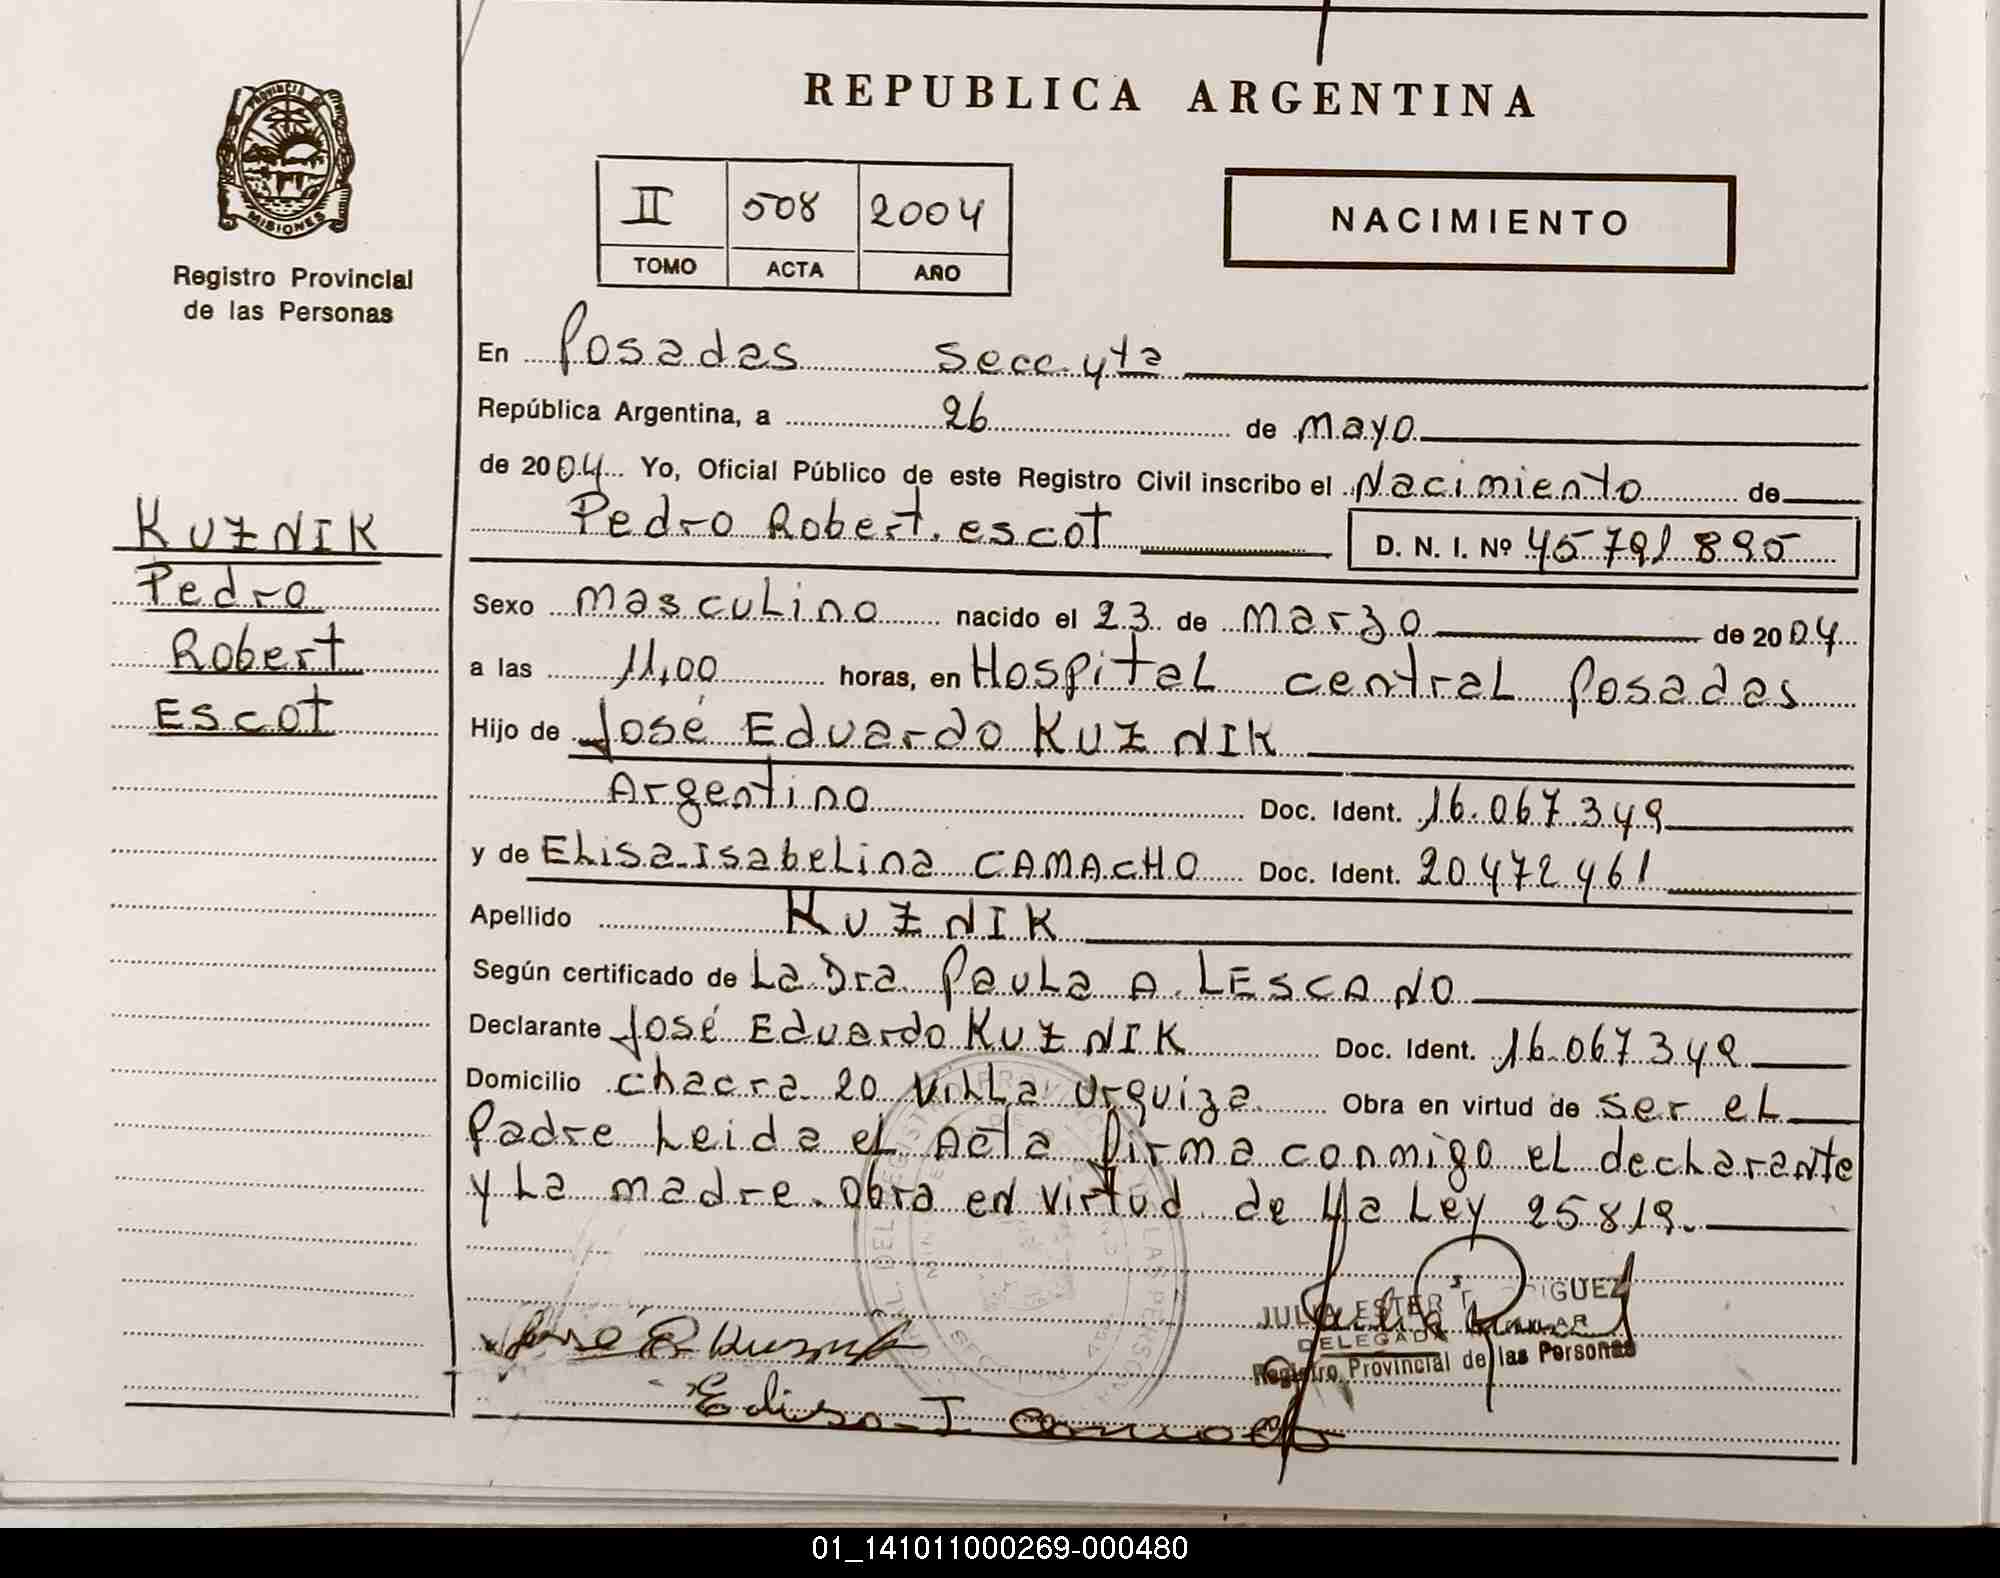 REPUBLICA ARGENTINA
PROVINCIA DE
MISIONES
Registro Provincial
de las Personas
II 508 2004
TOMO ACTA AÑO
NACIMIENTO
En Posadas Secc. 4ta
República Argentina, a 26 de Mayo
de 2004 Yo, Oficial Público de este Registro Civil inscribo el Nacimiento de
Pedro Robert escot D. N. I. Nº 45 791 895
KUZNIK
Pedro
Robert
Escot
Sexo masculino nacido el 23 de Marzo de 2004
a las 11,00 horas, en Hospital central Posadas
Hijo de José Eduardo KUZNIK
Argentino Doc. Ident. 16.067.349
y de Elisa Isabelina CAMACHO Doc. Ident. 20 472 461
Apellido KUZNIK
Según certificado de La Dra Paula A. LESCANO
Declarante José Eduardo KUZNIK Doc. Ident. 16.067.349
Domicilio chacra 20 Villa Urquiza Obra en virtud de ser el
Padre Leida el Acta firma conmigo el declarante
y La madre. obra en virtud de La Ley 25819.
José E Kuznik
Elisa I Camacho
JULIA ESTER
DELEGADA
Registro Provincial de las Personas
01_141011000269-000480